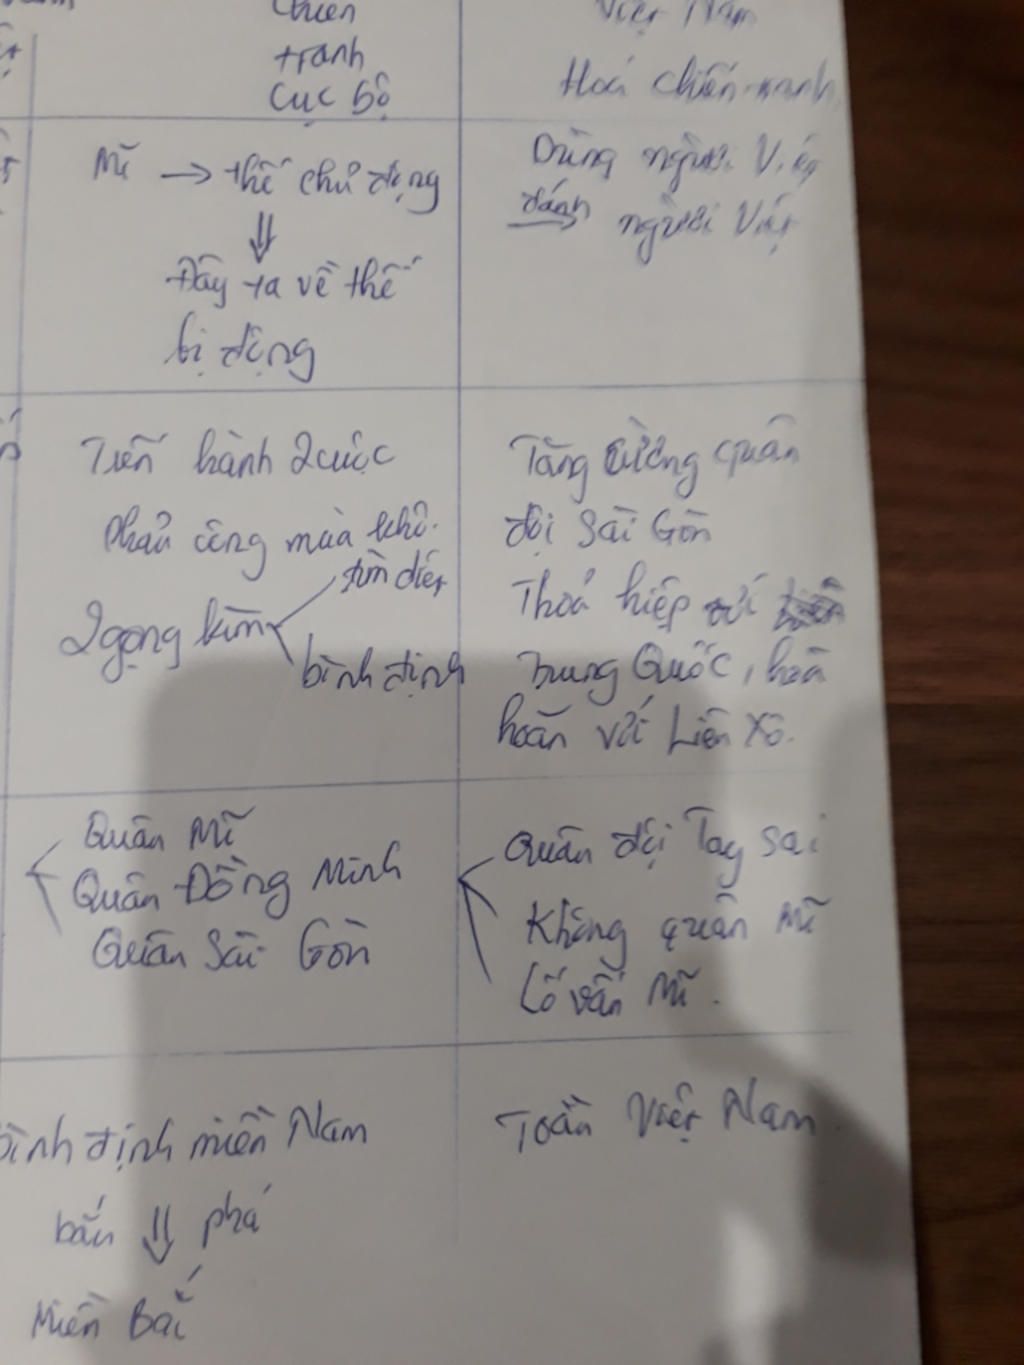 Chiến
tranh
Cục bộ
Việt Nam
Hoá chiến tranh
Mĩ → thế chủ động
⇓
Đẩy ta về thế
bị động
Dùng người Việt
đánh người Việt
Tiến hành 2 cuộc
phản công mùa khô.
2 gọng kìm
tìm diệt
bình định
Tăng cường quân
đội Sài Gòn
Thoả hiệp với
Trung Quốc, hoà
hoãn với Liên Xô.
Quân Mĩ
Quân Đồng Minh
Quân Sài Gòn
Quân đội Tay sai
Không quân Mĩ
Cố vấn Mĩ.
bình định miền Nam
bắn ⇓ phá
Miền Bắc
Toàn Việt Nam.